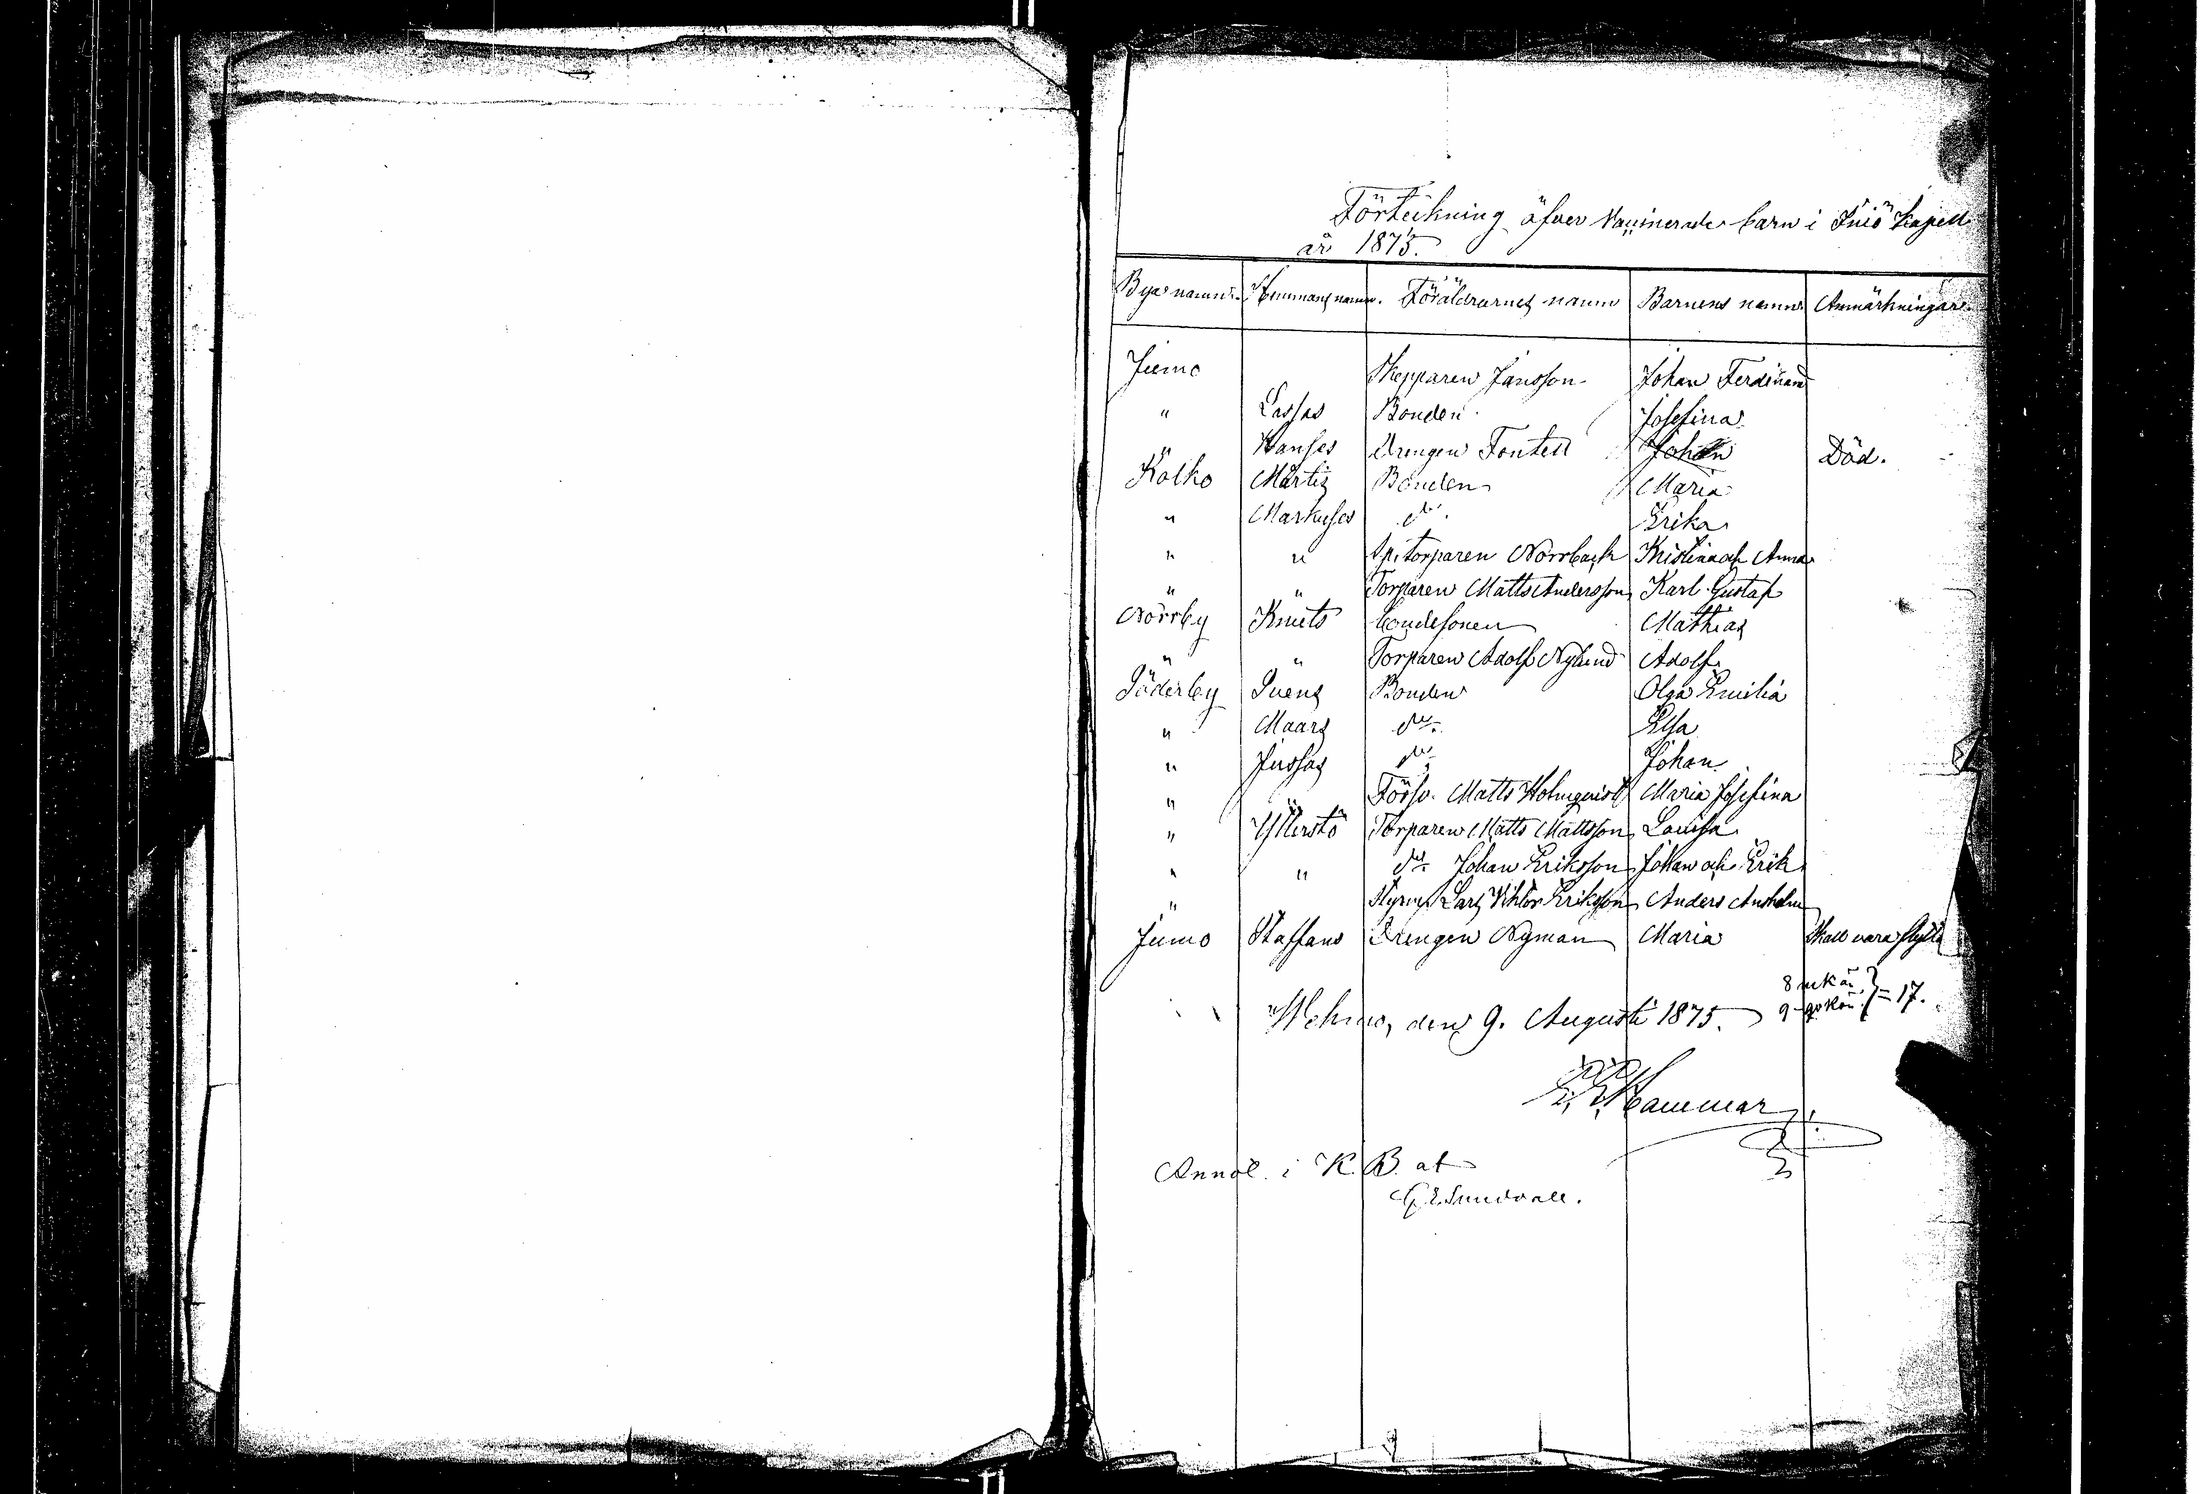 Förteckning öfver Vaccinerade barn i Iniö Kapell
år 1875.
Byars namn. Hemmans namn. Föräldrarnes namn Barnens namn Anmärkningar.
Jumo Skepparen Jansson Johan Ferdinand
" Lassas Bonden Josefina
" Hanses Drengen Fontell Johan Död.
Kolko Mårtis Bonden Maria
" Markuses d:o Erika
" " Sp. torparen Norrback Kristina och Anna
" " Torparen Matts Andersson Karl Gustaf
Norrby Knuts bondesonen Mathias
" " Torparen Adolf Nylund Adolf
Söderby Svens Bonden Olga Emilia
" Maars d:o Elsa
" Jussas d:o Johan
" Förso. Matts Holmqvist Maria Josefina
" Torparen Matts Mattsson Lovisa
" " d:o Johan Eriksson Johan och Erik
" Styrm. Lars Viktor Eriksson Anders Anshelm
Jumo Staffans Drengen Nyman Maria Skall vara flytta
8 mkön
9 qvkön } = 17.
Wehmo, den 9. Augusti 1875.
Hammar
Annot. i K. B. af
Sundvall.